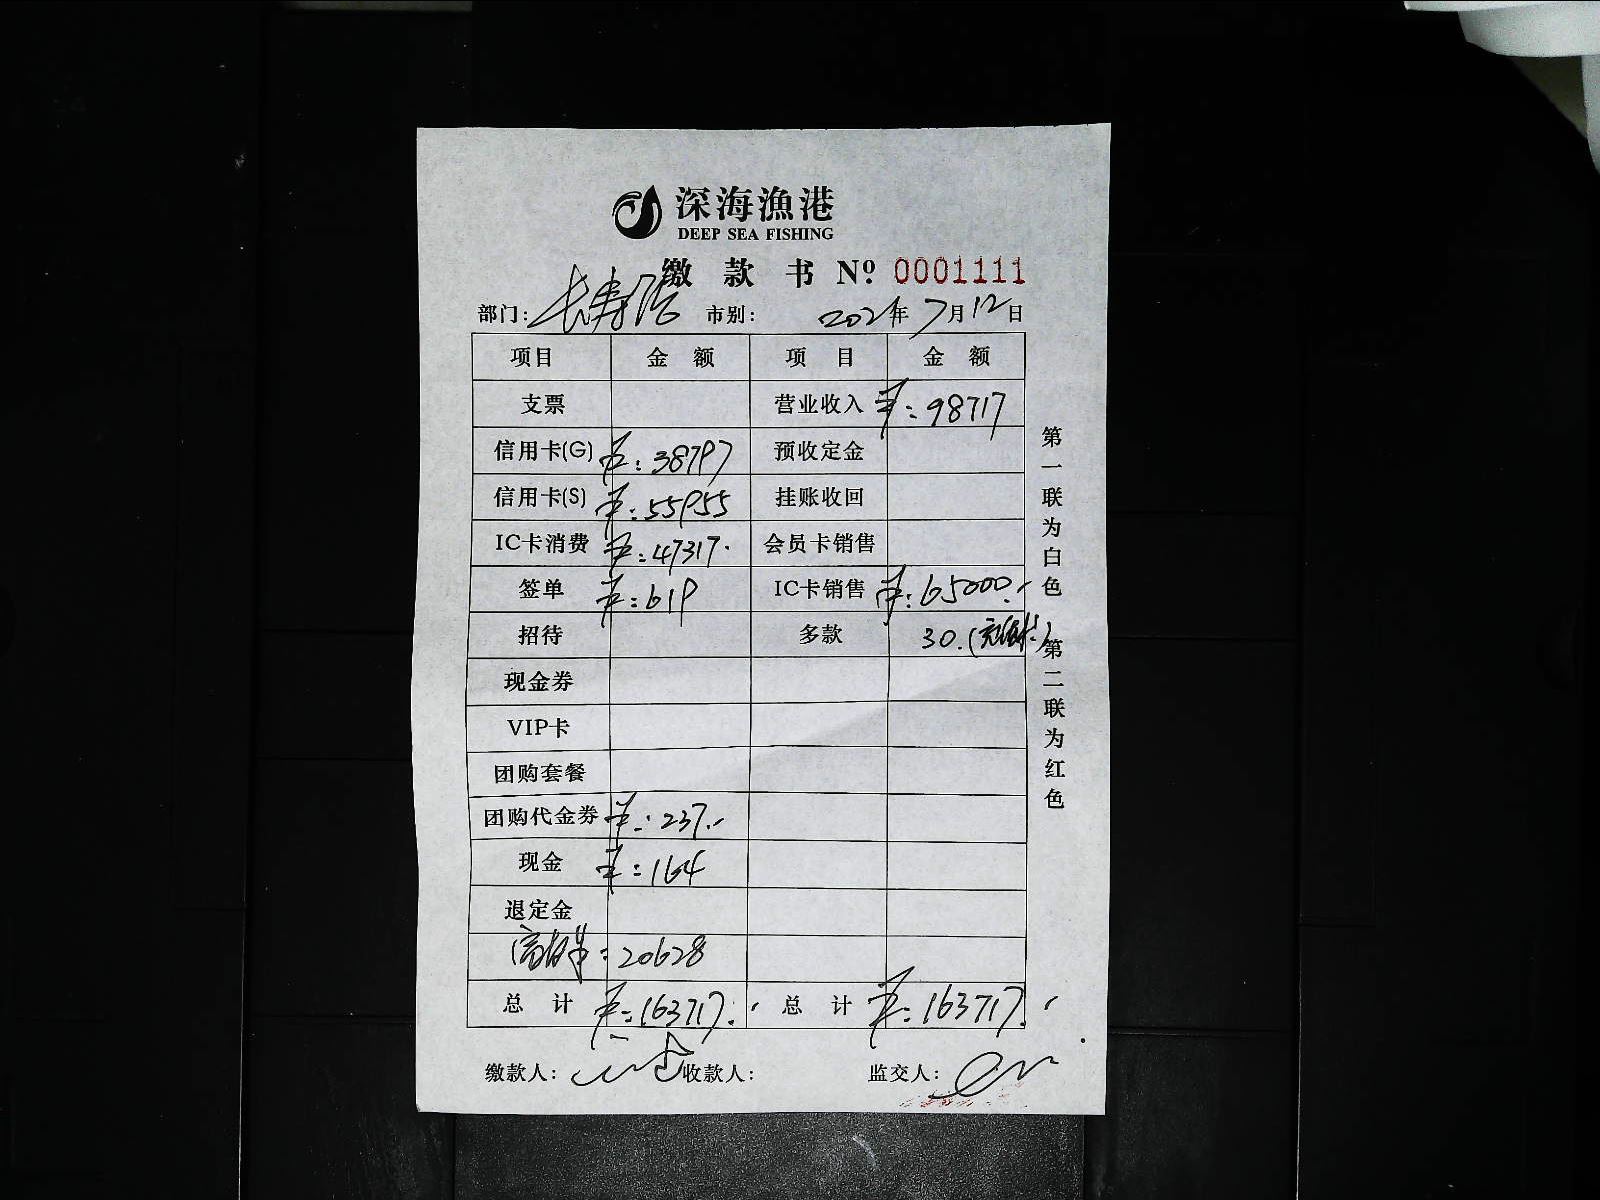 深海渔港
DEEP SEA FISHING
缴款书 Nº. 0001111
部门: 长寿路 市别: 2021年7月12日
项目 金额 项目 金额
支票 营业收入 ¥:98717
信用卡(G) ¥:38797 预收定金
信用卡(S) ¥:55955 挂账收回
IC卡消费 ¥:47317. 会员卡销售
签单 ¥:619 IC卡销售 ¥:65000.
招待 多款 30.
现金券
VIP卡
团购套餐
团购代金券 ¥:237.
现金 ¥:164
退定金
¥:20628
总计 ¥:163717. 总计 ¥:163717.
缴款人: 收款人: 监交人:
第一联为白色 第二联为红色